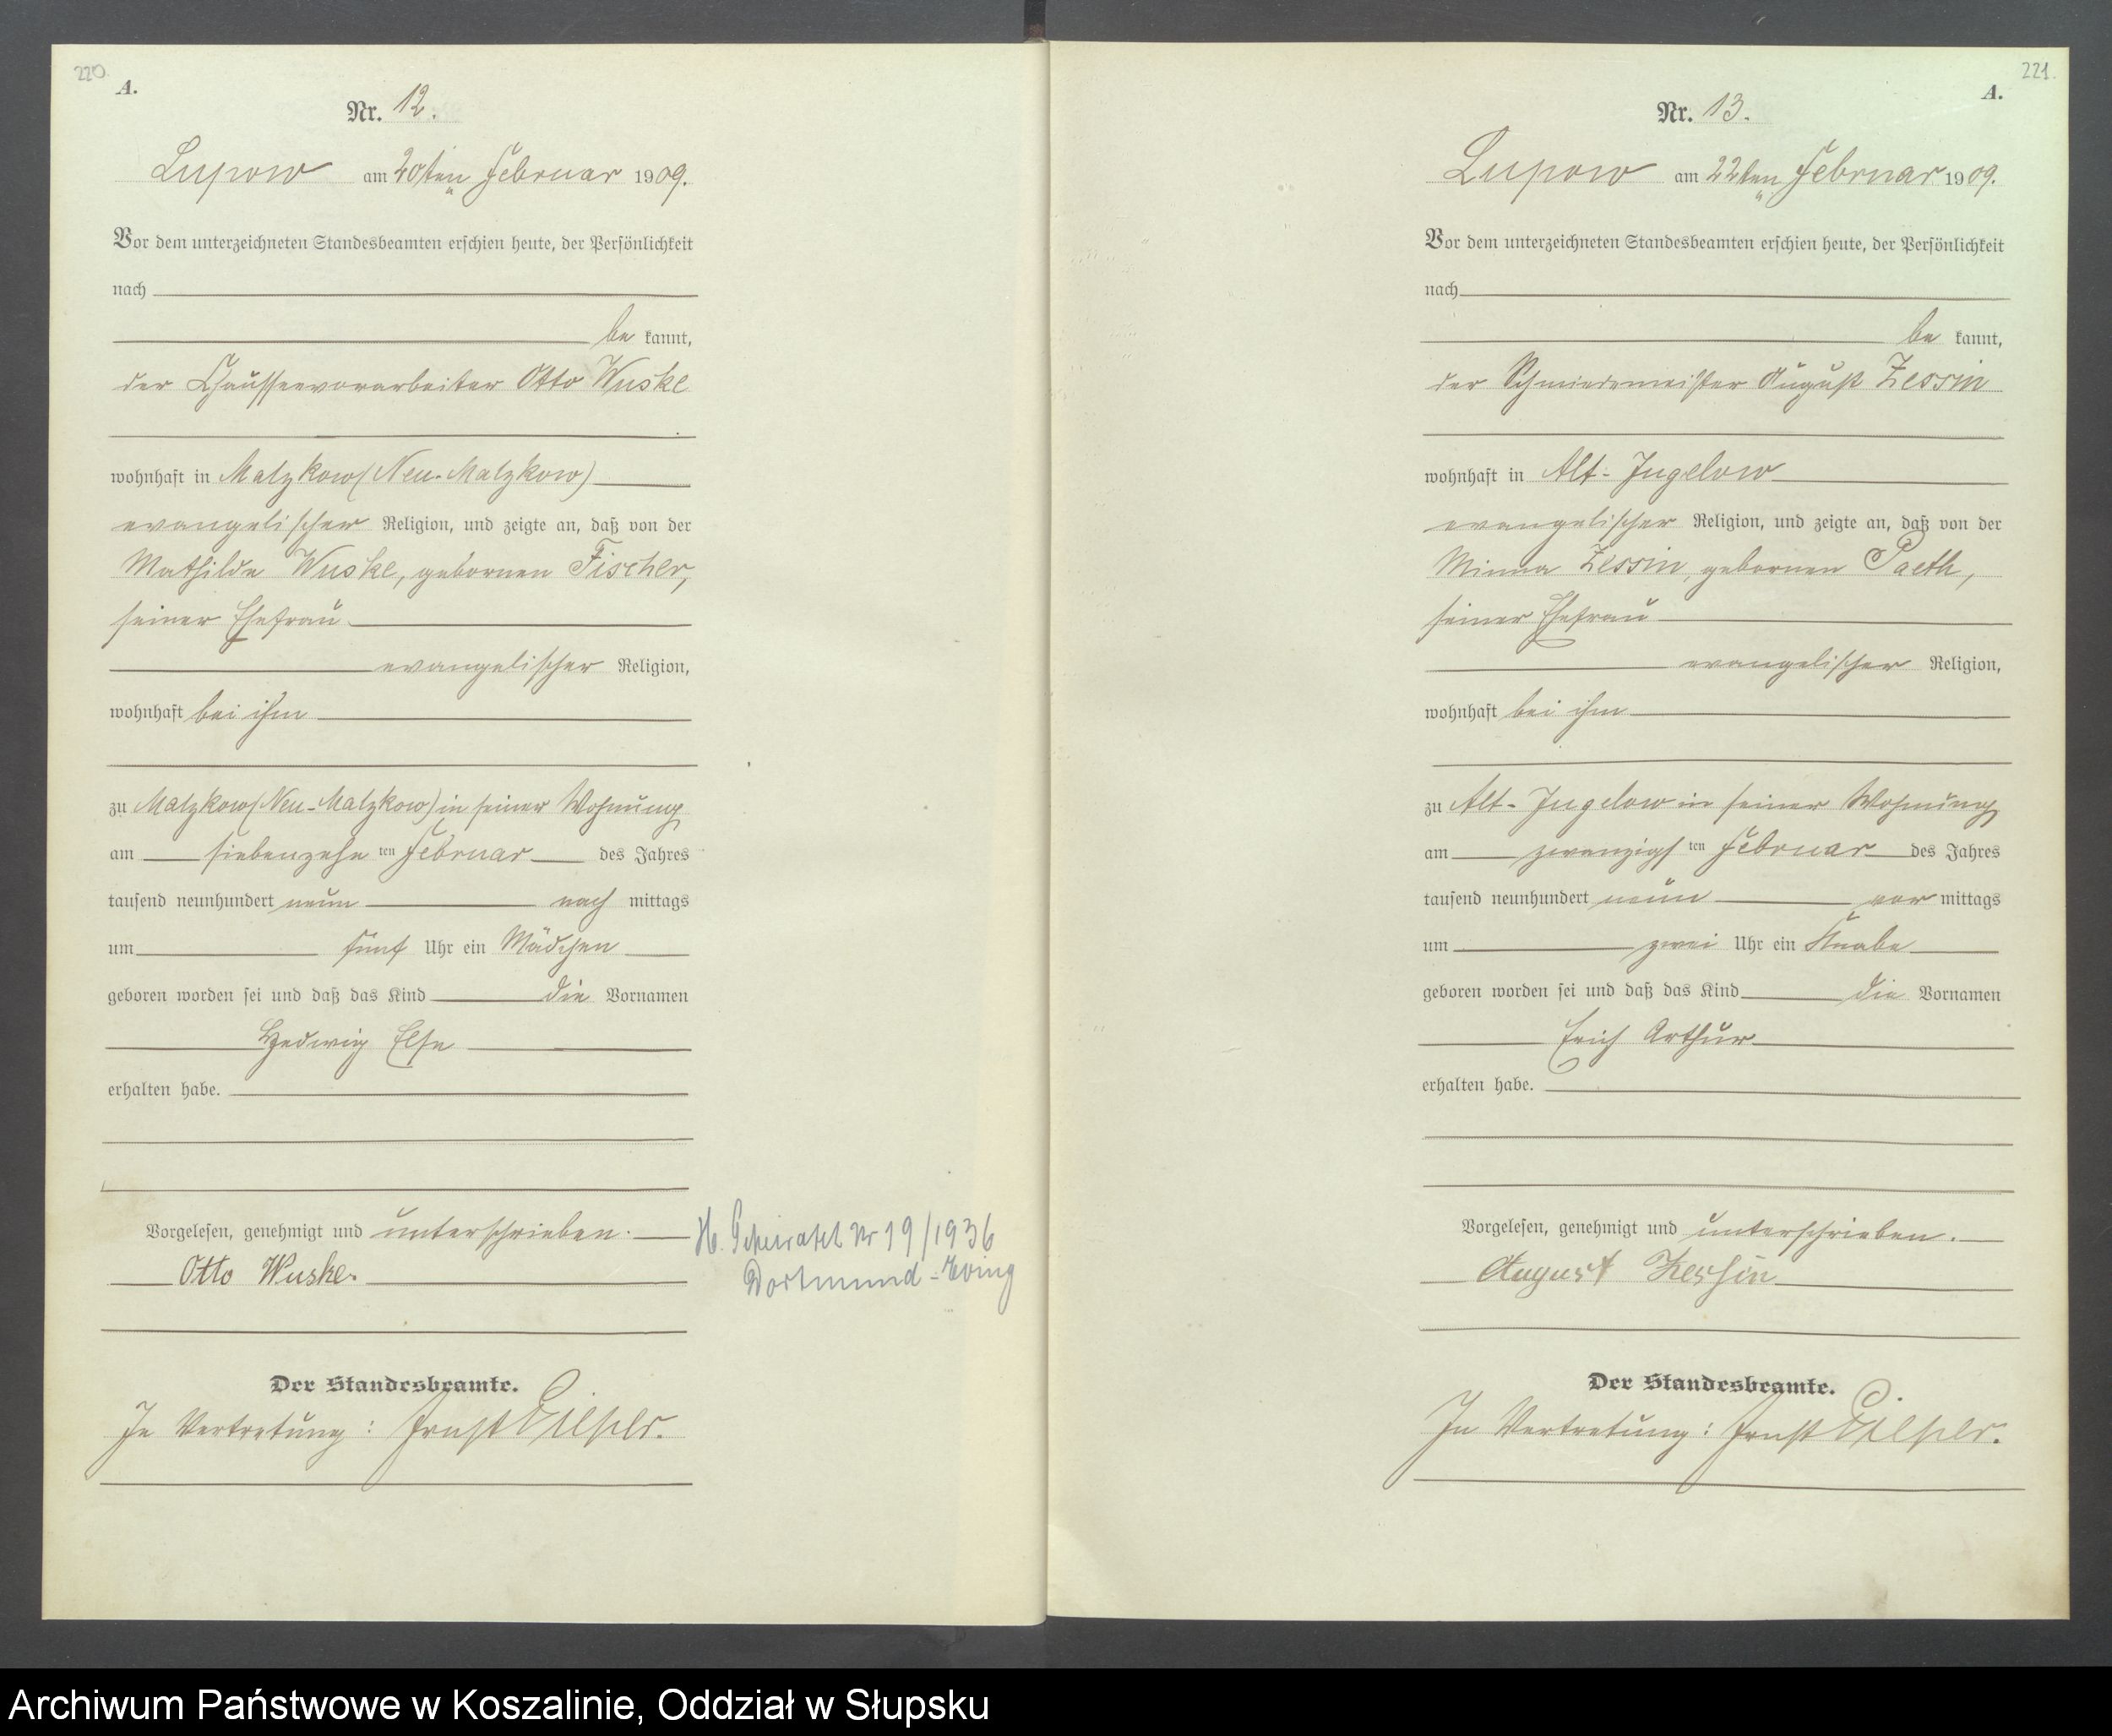 220.
A.
Nr. 12.
Lupow am 20ten Februar 1909.
Vor dem unterzeichneten Standesbeamten erschien heute, der Persönlichkeit
nach
be kannt,
der Chausseevorarbeiter Otto Wuske
wohnhaft in Malzkow (Neu-Malzkow)
evangelischer Religion, und zeigte an, daß von der
Mathilde Wuske, geborenen Fischer,
seiner Ehefrau
evangelischer Religion,
wohnhaft bei ihm
zu Malzkow (Neu-Malzkow) in seiner Wohnung
am siebenzehn ten Februar des Jahres
tausend neunhundert neun nach mittags
um fünf Uhr ein Mädchen
geboren worden sei und daß das Kind die Vornamen
Hedwig Else
erhalten habe.
Vorgelesen, genehmigt und unterschrieben.
Otto Wuske.
Der Standesbeamte.
In Vertretung: Ernst
H. Geheiratet Nr 19/1936
Dortmund-Eving
221.
A.
Nr. 13.
Lupow am 22ten Februar 1909.
Vor dem unterzeichneten Standesbeamten erschien heute, der Persönlichkeit
nach
be kannt,
der Schmiedemeister August Zessin
wohnhaft in Alt-Jugelow
evangelischer Religion, und zeigte an, daß von der
Minna Zessin, geborenen Paeth,
seiner Ehefrau
evangelischer Religion,
wohnhaft bei ihm
zu Alt-Jugelow in seiner Wohnung
am zwanzigs ten Februar des Jahres
tausend neunhundert neun vor mittags
um zwei Uhr ein Knabe
geboren worden sei und daß das Kind die Vornamen
Erich Arthur
erhalten habe.
Vorgelesen, genehmigt und unterschrieben.
August Zessin
Der Standesbeamte.
In Vertretung: Ernst
Archiwum Państwowe w Koszalinie, Oddział w Słupsku